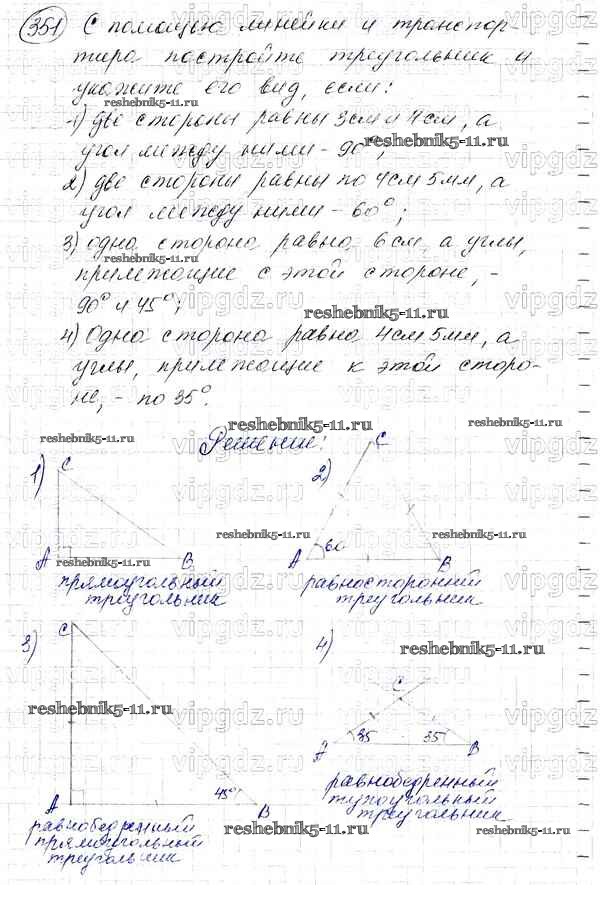 351 С помощью линейки и транспор-
тира постройте треугольник и
укажите его вид, если:
reshebnik5-11.ru
1) две стороны равны 3см и 4см, а
reshebnik5-11.ru
угол между ними - 90°;
2) две стороны равны по 4см 5мм, а
угол между ними - 60°;
3) одна сторона равна 6см, а углы,
reshebnik5-11.ru
прилежащие к этой стороне, -
90° и 45°;
reshebnik5-11.ru
4) Одна сторона равна 4см 5мм, а
углы, прилежащие к этой сторо-
не, - по 35°.
reshebnik5-11.ru
reshebnik5-11.ru
Решение:
1) C
2) C
reshebnik5-11.ru
60
A B
reshebnik5-11.ru
A B
прямоугольный
треугольник
равносторонний
треугольник
3) C
4)
reshebnik5-11.ru
C
reshebnik5-11.ru
35 35
A B
45°
A B
равнобедренный
прямоугольный
треугольник
равнобедренный
тупоугольный
треугольник
reshebnik5-11.ru
vipgdz.ru